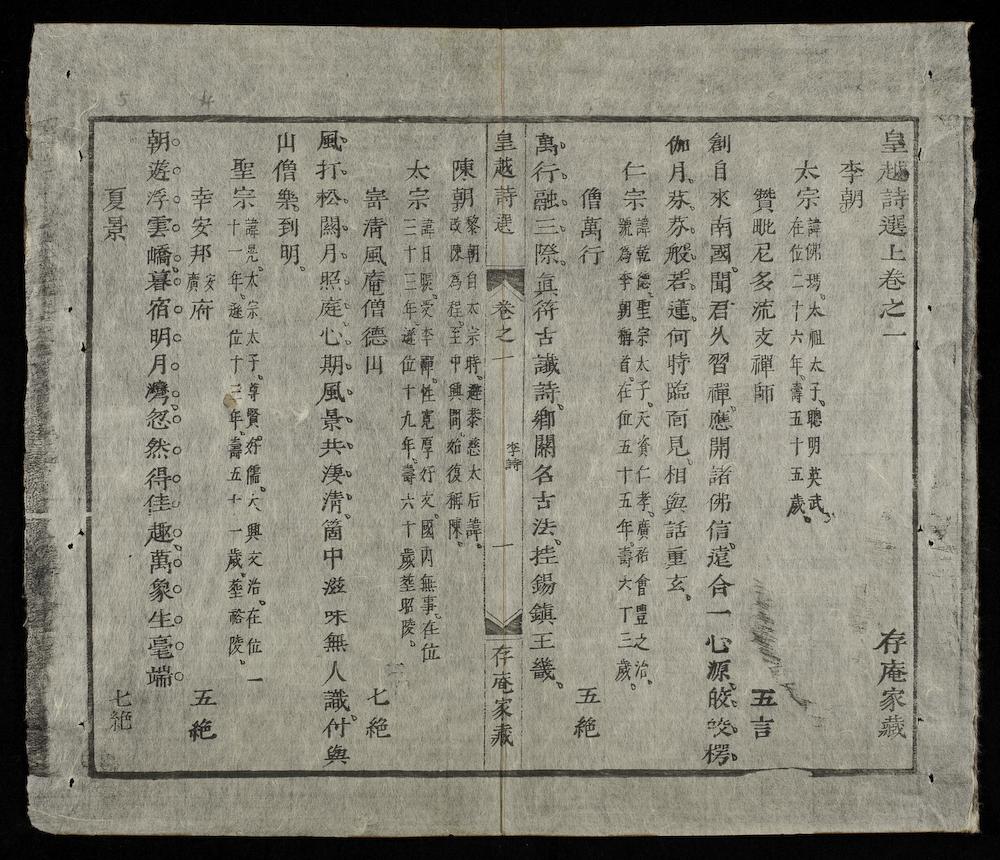 皇越詩選上卷之一 存庵家藏
李朝
太宗 諱佛瑪太祖太子聰明英武
在位二十六年壽五十五歲
贊毗尼多流支禪師 五言
創自來南國聞君久習禪應開諸佛信遠合一心源皎皎楞
伽月芬芬般若蓮何時臨面見相與話重玄
仁宗 諱乾德聖宗太子天資仁孝廣祐會豐之治
號為李朝稱首在位五十五年壽六丁三歲
僧萬行 五絶
萬行融三際真符古讖詩鄉關名古法拄錫鎮王畿
皇越詩選 卷之一 李詩 一 存庵家藏
陳朝 黎朝自太宗時避恭慈太后諱
改陳為程至中興間始復稱陳
太宗 諱日煚受李禪性寬厚好文國內無事在位
三十三年遜位十九年壽六十歲葬昭陵
寄清風庵僧德山 七絶
風打松關月照庭心期風景共淒清箇中滋味無人識付與
山僧樂到明
聖宗 諱晃太宗太子尊賢好儒大興文治在位一
十一年遜位十三年壽五十一歲葬裕陵
幸安邦 安廣 府 五絶
朝遊浮雲嶠暮宿明月灣忽然得佳趣萬象生毫端
夏景 七絶